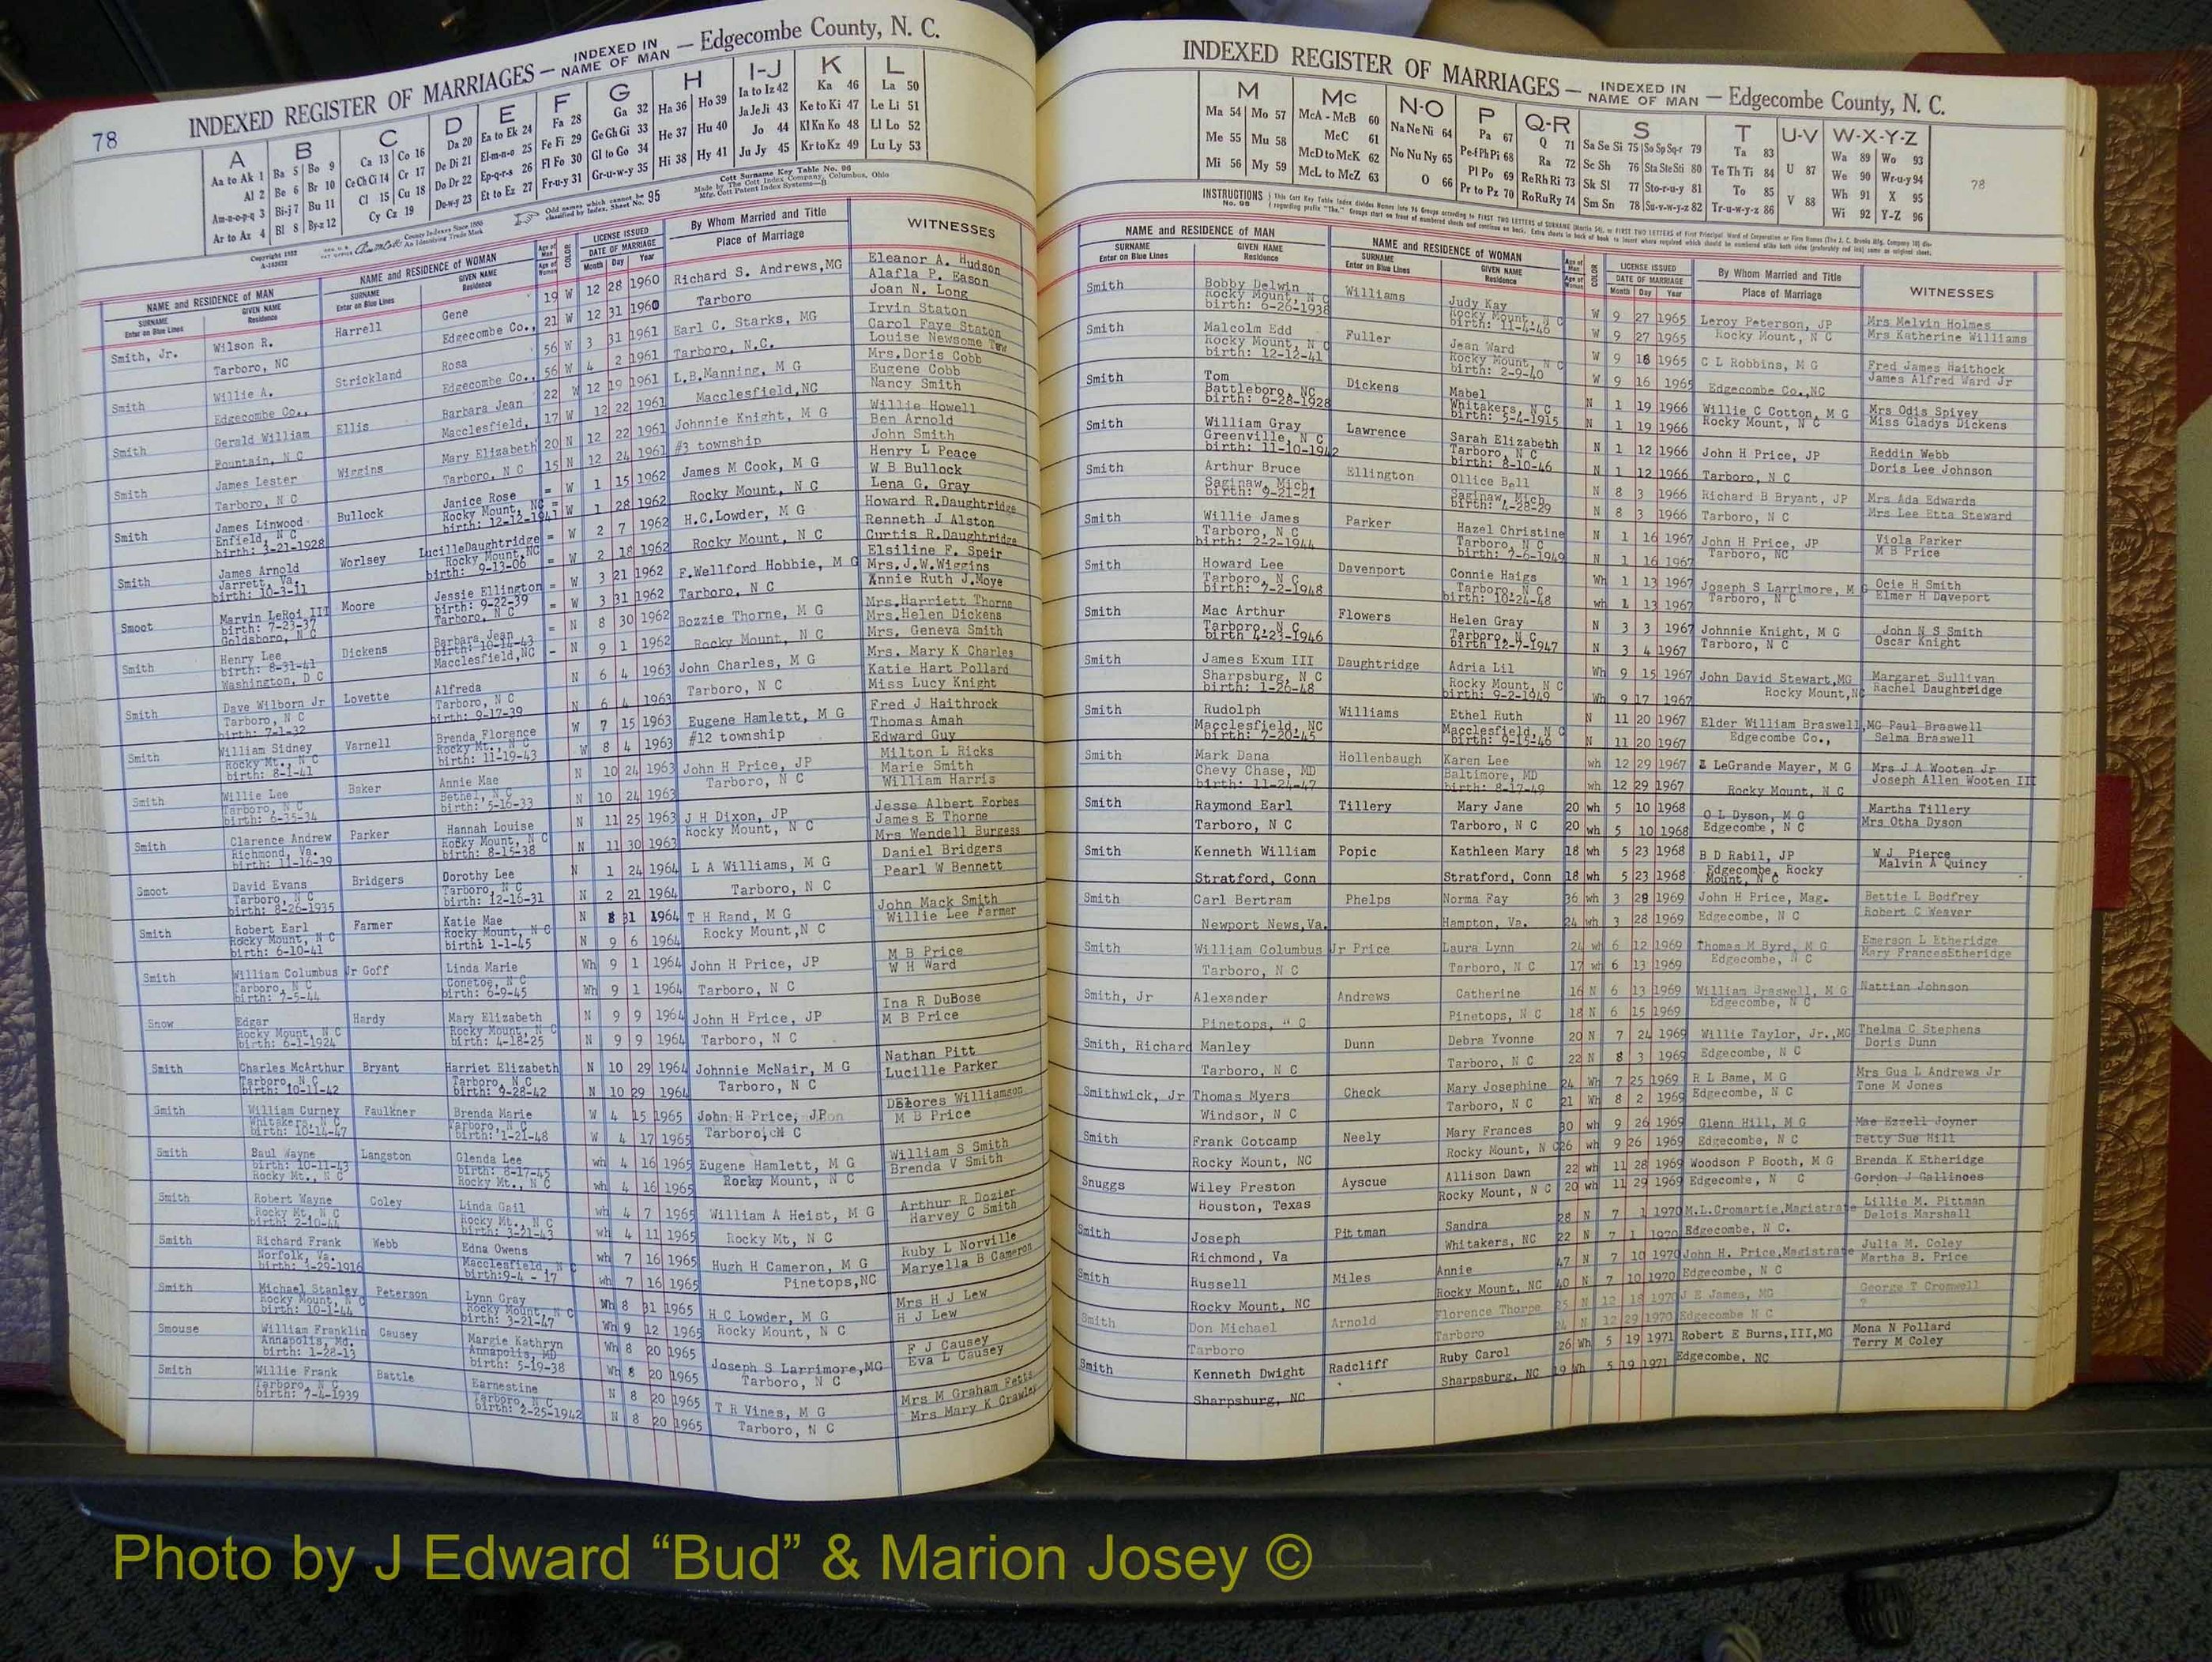 78
INDEXED REGISTER OF MARRIAGES — INDEXED IN NAME OF MAN — Edgecombe County, N. C.
A B C D E F G H I-J K L
Aa to Ak 1 Ba 5 Bo 9 Ca 13 Co 16 Da 20 Ea to Ek 24 Fa 28 Ga 32 Ha 36 Ho 39 Ia to Iz 42 Ka 46 La 50
Al 2 Be 6 Br 10 Ce Ch Ci 14 Cr 17 De Di 21 El-m-n-o 25 Fe Fi 29 Ge Gh Gi 33 He 37 Hu 40 Ja Je Ji 43 Ke to Ki 47 Le Li 51
Am-n-o-p-q 3 Bi-j 7 Bu 11 Cl 15 Cu 18 Do Dr 22 Ep-q-r-s 26 Fl Fo 30 Gl to Go 34 Hi 38 Hy 41 Jo 44 Kl Kn Ko 48 Ll Lo 52
Ar to Az 4 Bl 8 By-z 12 Cy Cz 19 Du-w-y 23 Et to Ez 27 Fr-u-y 31 Gr-u-w-y 35 Ju Jy 45 Kr to Kz 49 Lu Ly 53
Cott Surname Key Table No. 96
Made by The Cott Index Company, Columbus, Ohio
Mfg. Cott Patent Index Systems—B
NAME and RESIDENCE OF MAN NAME and RESIDENCE OF WOMAN COLOR LICENSE ISSUED By Whom Married and Title WITNESSES
SURNAME Enter on Blue Lines GIVEN NAME Residence SURNAME Enter on Blue Lines GIVEN NAME Residence DATE OF MARRIAGE Month Day Year Place of Marriage
Smith, Jr. Wilson R. Harrell Gene 19 W 12 28 1960 Richard S. Andrews,MG Eleanor A. Hudson
Alafla P. Eason
Tarboro, NC Edgecombe Co., 21 W 12 31 1960 Tarboro Joan N. Long
Smith Willie A. Strickland Rosa 56 W 3 31 1961 Earl C. Starks, MG Irvin Staton
Carol Faye Staton
Edgecombe Co., Edgecombe Co., 56 W 4 2 1961 Tarboro, N.C. Louise Newsome
Smith Gerald William Ellis Barbara Jean 22 W 12 19 1961 L.B.Manning, M G Mrs.Doris Cobb
Eugene Cobb
Fountain, N C Macclesfield, 17 W 12 22 1961 Macclesfield,NC Nancy Smith
Smith James Lester Wiggins Mary Elizabeth 20 N 12 22 1961 Johnnie Knight, M G Willie Howell
Ben Arnold
Tarboro, N C Tarboro, N C 15 N 12 24 1961 #3 township John Smith
Smith James Linwood Bullock Janice Rose = W 1 15 1962 James M Cook, M G Henry L Peace
Enfield, N C Rocky Mount, NC W B Bullock
birth: 3-21-1928 birth: 12-12-1941 W 1 28 1962 Rocky Mount, N C Lena G. Gray
Smith James Arnold Worlsey LucilleDaughtridge = W 2 7 1962 H.C.Lowder, M G Howard R.Daughtridge
Jarrett, Va. Rocky Mount,NC Renneth J Alston
birth: 10-3-11 birth: 9-13-06 = W 2 18 1962 Rocky Mount, N C Curtis R.Daughtridge
Smoot Marvin LeRoi III Moore Jessie Ellington = W 3 21 1962 F.Wellford Hobbie, M G Elsiline F. Speir
birth: 7-23-37 birth: 9-22-39 Mrs.J.W.Wiggins
Goldsboro, N C Tarboro, N C = W 3 31 1962 Tarboro, N C Annie Ruth J.Moye
Smith Henry Lee Dickens Barbara Jean = N 8 30 1962 Bozzie Thorne, M G Mrs.Harriett Thorne
birth: 8-31-41 birth: 10-14-43 Mrs.Helen Dickens
Washington, D C Macclesfield,NC - N 9 1 1962 Rocky Mount, N C Mrs. Geneva Smith
Smith Dave Wilborn Jr Lovette Alfreda N 6 4 1963 John Charles, M G Mrs. Mary K Charles
Tarboro, N C Tarboro, N C Katie Hart Pollard
birth: 7-1-32 birth: 9-17-39 N 6 4 1963 Tarboro, N C Miss Lucy Knight
Smith William Sidney Varnell Brenda Florence W 7 15 1963 Eugene Hamlett, M G Fred J Haithrock
Rocky Mt., N C Rocky Mt., N C Thomas Amah
birth: 8-1-41 birth: 11-19-43 W 8 4 1963 #12 township Edward Guy
Smith Willie Lee Baker Annie Mae N 10 24 1963 John H Price, JP Milton L Ricks
Tarboro, N C Bethel, N C Marie Smith
birth: 6-35-34 birth: 5-16-33 N 10 24 1963 Tarboro, N C William Harris
Smith Clarence Andrew Parker Hannah Louise N 11 25 1963 J H Dixon, JP Jesse Albert Forbes
Richmond, Va. Rocky Mount, N C James E Thorne
birth: 11-16-39 birth: 8-15-38 N 11 30 1963 Rocky Mount, N C Mrs Wendell Burgess
Smoot David Evans Bridgers Dorothy Lee N 1 24 1964 L A Williams, M G Daniel Bridgers
Tarboro, N C Tarboro, N C Pearl W Bennett
birth: 8-26-1935 birth: 12-16-31 N 2 21 1964 Tarboro, N C
Smith Robert Earl Farmer Katie Mae N 8 31 1964 T H Rand, M G John Mack Smith
Rocky Mount, N C Rocky Mount, N C Willie Lee Farmer
birth: 6-10-41 birth: 1-1-45 N 9 6 1964 Rocky Mount,N C
Smith William Columbus Jr Goff Linda Marie Wh 9 1 1964 John H Price, JP M B Price
Tarboro, N C Conetoe, N C W H Ward
birth: 7-5-44 birth: 6-9-45 Wh 9 1 1964 Tarboro, N C
Snow Edgar Hardy Mary Elizabeth N 9 9 1964 John H Price, JP Ina R DuBose
Rocky Mount, N C Rocky Mount, N C M B Price
birth: 6-1-1924 birth: 4-18-25 N 9 9 1964 Tarboro, N C
Smith Charles McArthur Bryant Harriet Elizabeth N 10 29 1964 Johnnie McNair, M G Nathan Pitt
Tarboro, N C Tarboro, N C Lucille Parker
birth: 10-11-42 birth: 9-28-42 N 10 29 1964 Tarboro, N C
Smith William Curney Faulkner Brenda Marie W 4 15 1965 John H Price, JP Delores Williamson
Whitakers, N C Tarboro, N C M B Price
birth: 10-14-47 birth: 1-21-48 W 4 17 1965 Tarboro, N C
Smith Baul Wayne Langston Glenda Lee wh 4 16 1965 Eugene Hamlett, M G William S Smith
birth: 10-11-43 birth: 8-17-45 Brenda V Smith
Rocky Mt., N C Rocky Mt., N C wh 4 16 1965 Rocky Mount, N C
Smith Robert Wayne Coley Linda Gail wh 4 7 1965 William A Heist, M G Arthur R Dozier
Rocky Mt, N C Rocky Mt., N C Harvey C Smith
birth: 2-10-44 birth: 3-21-43 wh 4 11 1965 Rocky Mt, N C
Smith Richard Frank Webb Edna Owens wh 7 16 1965 Hugh H Cameron, M G Ruby L Norville
Norfolk, Va. Macclesfield, N C Maryella B Cameron
birth: 1-29-1916 birth:9-4 - 17 wh 7 16 1965 Pinetops,NC
Smith Michael Stanley Peterson Lynn Gray Wh 8 31 1965 H C Lowder, M G Mrs H J Lew
Rocky Mount, N C Rocky Mount, N C H J Lew
birth: 10-1-44 birth: 3-21-47 Wh 9 12 1965 Rocky Mount, N C
Smouse William Franklin Causey Margie Kathryn Wh 8 20 1965 Joseph S Larrimore,MG F J Causey
Annapolis, Md. Annapolis, MD Eva L Causey
birth: 1-28-13 birth: 5-19-38 Wh 8 20 1965 Tarboro, N C
Smith Willie Frank Battle Earnestine N 8 20 1965 T R Vines, M G Mrs M Graham Fetts
Tarboro, N C Tarboro, N C Mrs Mary K Crawley
birth: 7-4-1939 birth: 2-25-1942 N 8 20 1965 Tarboro, N C
INDEXED REGISTER OF MARRIAGES — INDEXED IN NAME OF MAN — Edgecombe County, N. C.
M Mc N-O P Q-R S T U-V W-X-Y-Z
Ma 54 Mo 57 McA - McB 60 Na Ne Ni 64 Pa 67 Q 71 Sa Se Si 75 So Sp Sq-r 79 Ta 83 U 87 Wa 89 Wo 93
Me 55 Mu 58 McC 61 No Nu Ny 65 Pe-f Ph Pi 68 Ra 72 Sc Sh 76 Sta Ste Sti 80 Te Th Ti 84 V 88 We 90 Wr-u-y 94
Mi 56 My 59 McD to McK 62 O 66 Pl Po 69 Re Rh Ri 73 Sk Sl 77 Sto-r-u-y 81 To 85 Wh 91 X 95
McL to McZ 63 Pr to Pz 70 Ro Ru Ry 74 Sm Sn 78 Su-v-w-y-z 82 Tr-u-w-y-z 86 Wi 92 Y-Z 96
78
NAME and RESIDENCE OF MAN NAME and RESIDENCE OF WOMAN COLOR LICENSE ISSUED By Whom Married and Title WITNESSES
SURNAME Enter on Blue Lines GIVEN NAME Residence SURNAME Enter on Blue Lines GIVEN NAME Residence DATE OF MARRIAGE Month Day Year Place of Marriage
Smith Bobby Delwin Williams Judy Kay W 9 27 1965 Leroy Peterson, JP Mrs Melvin Holmes
Rocky Mount, N C Rocky Mount, N C
birth: 6-26-1938 birth: 11-4-46 W 9 27 1965 Rocky Mount, N C Mrs Katherine Williams
Smith Malcolm Edd Fuller Jean Ward W 9 18 1965 C L Robbins, M G Fred James Haithock
Rocky Mount, N C Rocky Mount, N C James Alfred Ward Jr
birth: 12-12-41 birth: 2-9-40 W 9 16 1965 Edgecombe Co.,NC
Smith Tom Dickens Mabel N 1 19 1966 Willie C Cotton, M G Mrs Odis Spivey
Battleboro, NC Whitakers, N C
birth: 6-28-1928 birth: 5-4-1915 N 1 19 1966 Rocky Mount, N C Miss Gladys Dickens
Smith William Gray Lawrence Sarah Elizabeth N 1 12 1966 John H Price, JP Reddin Webb
Greenville, N C Tarboro, N C Doris Lee Johnson
birth: 11-10-1942 birth: 8-10-46 N 1 12 1966 Tarboro, N C
Smith Arthur Bruce Ellington Ollice Bell N 8 3 1966 Richard B Bryant, JP Mrs Ada Edwards
Saginaw, Mich. Saginaw, Mich.
birth: 9-21-21 birth: 4-28-29 N 8 3 1966 Tarboro, N C Mrs Lee Etta Steward
Smith Willie James Parker Hazel Christine N 1 16 1967 John H Price, JP Viola Parker
Tarboro, N C Tarboro, N C Tarboro, NC M B Price
birth: 2-2-1944 birth: 7-6-1949 N 1 16 1967
Smith Howard Lee Davenport Connie Haigs Wh 1 13 1967 Joseph S Larrimore, M G Ocie H Smith
Tarboro, N C Tarboro, N C Tarboro, N C Elmer H Daveport
birth: 7-2-1948 birth: 10-24-48 wh 1 13 1967
Smith Mac Arthur Flowers Helen Gray N 3 3 1967 Johnnie Knight, M G John N S Smith
Tarboro, N C Tarboro, N C Oscar Knight
birth 4-23-1946 birth 12-7-1947 N 3 4 1967 Tarboro, N C
Smith James Exum III Daughtridge Adria Lil Wh 9 15 1967 John David Stewart,MG Margaret Sullivan
Sharpsburg, N C Rocky Mount, N C Rocky Mount,NC Rachel Daughtridge
birth: 1-26-48 birth: 9-2-1949 Wh 9 17 1967
Smith Rudolph Williams Ethel Ruth N 11 20 1967 Elder William Braswell,MG Paul Braswell
Macclesfield, NC Macclesfield, N C Edgecombe Co., Selma Braswell
birth: 7-20-45 birth: 9-15-46 N 11 20 1967
Smith Mark Dana Hollenbaugh Karen Lee wh 12 29 1967 LeGrande Mayer, M G Mrs J A Wooten Jr
Chevy Chase, MD Baltimore, MD Joseph Allen Wooten III
birth: 11-24-47 birth: 8-17-49 wh 12 29 1967 Rocky Mount, N C
Smith Raymond Earl Tillery Mary Jane 20 wh 5 10 1968 O L Dyson, M G Martha Tillery
Tarboro, N C Tarboro, N C 20 wh 5 10 1968 Edgecombe, N C Mrs Otha Dyson
Smith Kenneth William Popic Kathleen Mary 18 wh 5 23 1968 B D Rabil, JP W J Pierce
Malvin A Quincy
Stratford, Conn Stratford, Conn 18 wh 5 23 1968 Edgecombe, Rocky Mount, N C
Smith Carl Bertram Phelps Norma Fay 36 wh 3 28 1969 John H Price, Mag. Bettie L Bodfrey
Newport News,Va. Hampton, Va. 24 wh 3 28 1969 Edgecombe, N C Robert C Weaver
Smith William Columbus Jr Price Laura Lynn 24 wh 6 12 1969 Thomas M Byrd, M G Emerson L Etheridge
Tarboro, N C Tarboro, N C 17 wh 6 13 1969 Edgecombe, N C Mary FrancesEtheridge
Smith, Jr Alexander Andrews Catherine 16 N 6 13 1969 William Braswell, M G Nattian Johnson
Pinetops, N C Pinetops, N C 18 N 6 15 1969 Edgecombe, N C
Smith, Richard Manley Dunn Debra Yvonne 20 N 7 24 1969 Willie Taylor, Jr.,MG Thelma C Stephens
Tarboro, N C Tarboro, N C 22 N 8 3 1969 Edgecombe, N C Doris Dunn
Smithwick, Jr Thomas Myers Check Mary Josephine 24 Wh 7 25 1969 R L Bame, M G Mrs Gus L Andrews Jr
Windsor, N C Tarboro, N C 21 Wh 8 2 1969 Edgecombe, N C Tone M Jones
Smith Frank Cotcamp Neely Mary Frances 30 wh 9 26 1969 Glenn Hill, M G Mae Ezzell Joyner
Rocky Mount, NC Rocky Mount, N C 26 wh 9 26 1969 Edgecombe, N C Betty Sue Hill
Snuggs Wiley Preston Ayscue Allison Dawn 22 wh 11 28 1969 Woodson P Booth, M G Brenda K Etheridge
Houston, Texas Rocky Mount, N C 20 wh 11 29 1969 Edgecombe, N C Gordon J Gallinoes
Smith Joseph Pittman Sandra 28 N 7 1 1970 M.L.Cromartie,Magistrate Lillie M. Pittman
Richmond, Va Whitakers, NC 22 N 7 1 1970 Edgecombe, N C. Delois Marshall
Smith Russell Miles Annie 47 N 7 10 1970 John H. Price,Magistrate Julia M. Coley
Rocky Mount, NC Rocky Mount, NC 40 N 7 10 1970 Edgecombe, N C Martha B. Price
Smith Don Michael Arnold Florence Thorpe 25 N 12 18 1970 J E James, MG George T Cromwell
Tarboro Tarboro 24 N 12 29 1970 Edgecombe N C ?
Smith Kenneth Dwight Radcliff Ruby Carol 26 Wh 5 19 1971 Robert E Burns,III,MG Mona N Pollard
Sharpsburg, NC Sharpsburg, NC 19 Wh 5 19 1971 Edgecombe, NC Terry M Coley
Photo by J Edward “Bud” & Marion Josey ©